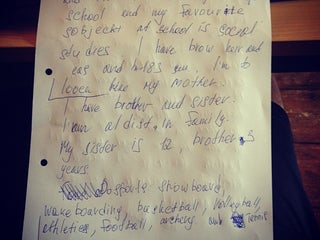 school and my favourite
sobject at school is social
studies I have brow hair and
eas and h-183 cm. I'm
like my mother.
I have brother and sister.
I am aldist in family.
My sister is 12, brother 5
years
sports snowboard,
wakeboarding, basketball, volleyball,
athletics, football, archery and tennis